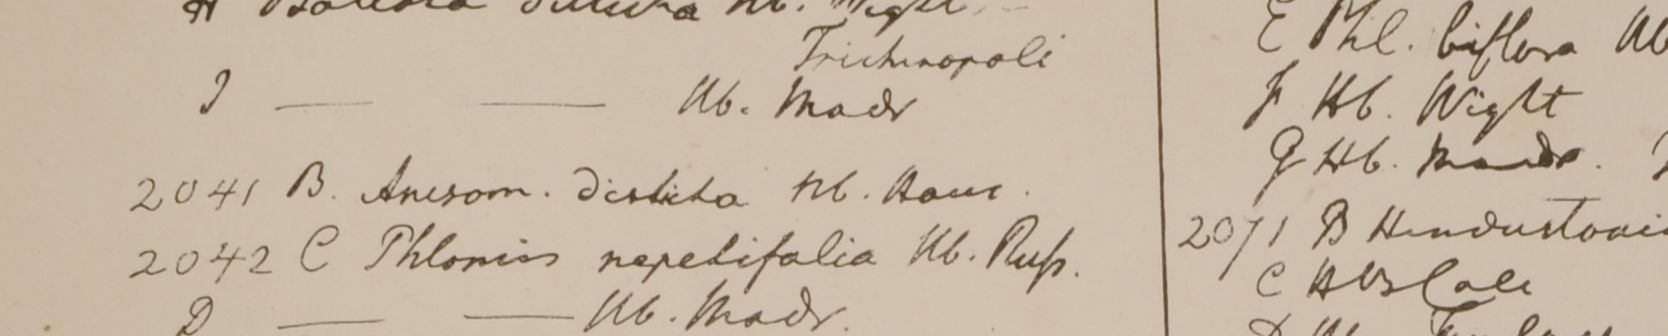 H Ballota disticha Hb. Wight
Trichinopoli
I — — Hb. Madr
2041 B. Anisom. disticha Hb. Ham.
2042 C Phlomis nepetifolia Hb. Russ.
D — — Hb. Madr.
E Phl. biflora Hb
F Hb. Wight
G Hb. Madr.
2071 B Hindustani
C HBCalc
D Hb.